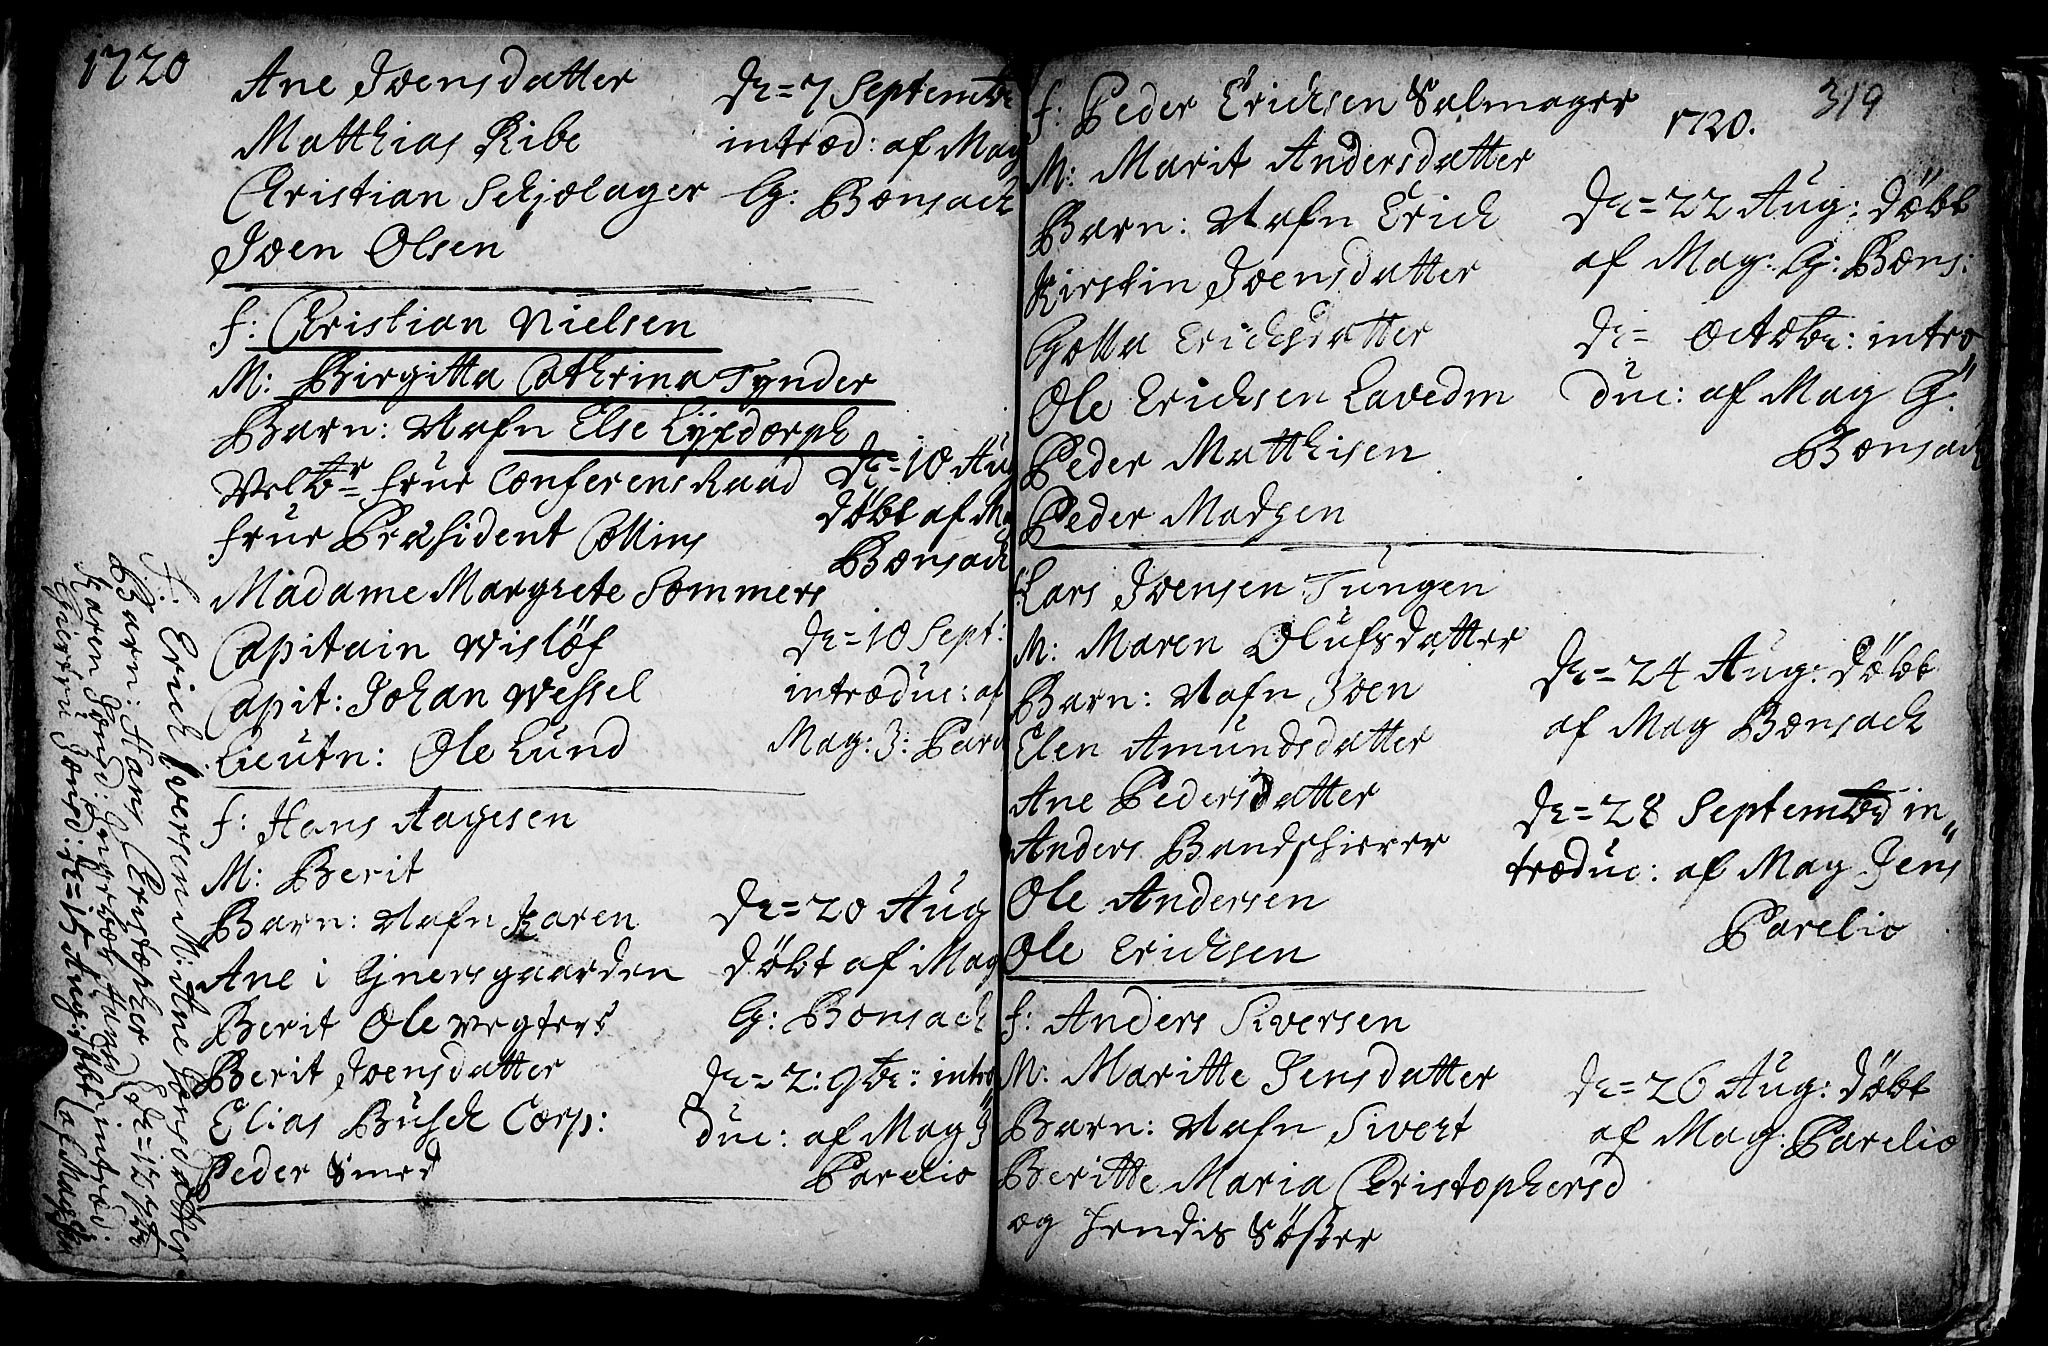 1720
Ane Joensdatter
Matthias Ribe
Christian Schjolager
Joen Olsen
De=7 Septembr
introd: af Mag
G: Bonsach
f: Christian Nielsen
M: Birgitta Cathrina Tynder
Barn: Nafn Else Lyxdorph
Velbr frue Conferens Raad
frue Præsident Collins
Madame Margrete Sommers
Capitain Wislöf
Capit: Johan Wessel
Lieutn: Ole Lund
De=10 Aug
döbt af Mag
Bonsach
De=10 Sept:
introduc: af
Mag: J: Parel
f: Hans Aagesen
M: Berit
Barn: Nafn Karen
Ane i Gjnersgaarden
Berit Ole Vegters
Berit Joensdatter
Elias Busch Corp:
Peder Smed
De=20 Aug
döbt af Mag
G: Bonsach
De=2: 9br: intro
duc: af Mag J
Parelio
F: Erich Iversen M: Ane Joensdatter
Barn: Hans Christopher
Karen Jonsd: Ingebor Hansd
De=15 Aug: döbt
319
1720.
f: Peder Erichsen Salmager
M: Marit Andersdatter
Barn: Nafn Erich
Kirstin Joensdatter
Gotta Erichsdatter
Ole Erichsen Lavedm
Peder Matthisen
Peder Madsen
De=22 Aug: döbt
af Mag: G: Bons:
De= Octobr: intro
duc: af Mag G:
Bonsach
Lars Joensen Tungen
M: Maren Olufsdatter
Barn: Nafn Joen
Elen Amundsdatter
Ane Pedersdatter
Anders Bandschierer
Ole Andersen
Ole Erichsen
De=24 Aug: döbt
af Mag Bonsach
De=28 Septembr in
troduc: af Mag Jens
Parelio
f: Anders Siversen
M: Maritte Jensdatter
Barn: Nafn Sivert
Beritte Maria Christophersd
og Jendis Söster
De=26 Aug: döbt
af Mag: Parelio